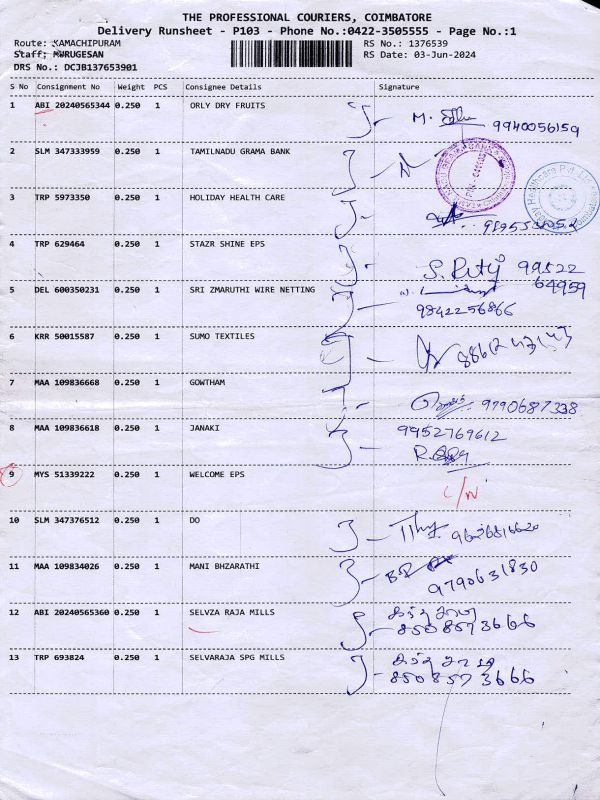 THE PROFESSIONAL COURIERS, COIMBATORE
Delivery Runsheet - P103 - Phone No.:0422-3505555 - Page No.:1
Route: KAMACHIPURAM RS No.: 1376539
Staff: MURUGESAN RS Date: 03-Jun-2024
DRS No.: DCJB137653901
S No Consignment No Weight PCS Consignee Details Signature
1 ABI 20240565344 0.250 1 ORLY DRY FRUITS M. 9940056159
2 SLM 347333959 0.250 1 TAMILNADU GRAMA BANK
3 TRP 5973350 0.250 1 HOLIDAY HEALTH CARE
4 TRP 629464 0.250 1 STAZR SHINE EPS 99522
64959
5 DEL 600350231 0.250 1 SRI ZMARUTHI WIRE NETTING
9842256866
6 KRR 50015587 0.250 1 SUMO TEXTILES
7 MAA 109836668 0.250 1 GOWTHAM 9790687338
8 MAA 109836618 0.250 1 JANAKI 9952769612
9 MYS 51339222 0.250 1 WELCOME EPS C/N
10 SLM 347376512 0.250 1 DO
11 MAA 109834026 0.250 1 MANI BHZARATHI
9790631830
12 ABI 20240565360 0.250 1 SELVZA RAJA MILLS
8508573666
13 TRP 693824 0.250 1 SELVARAJA SPG MILLS
8508573666